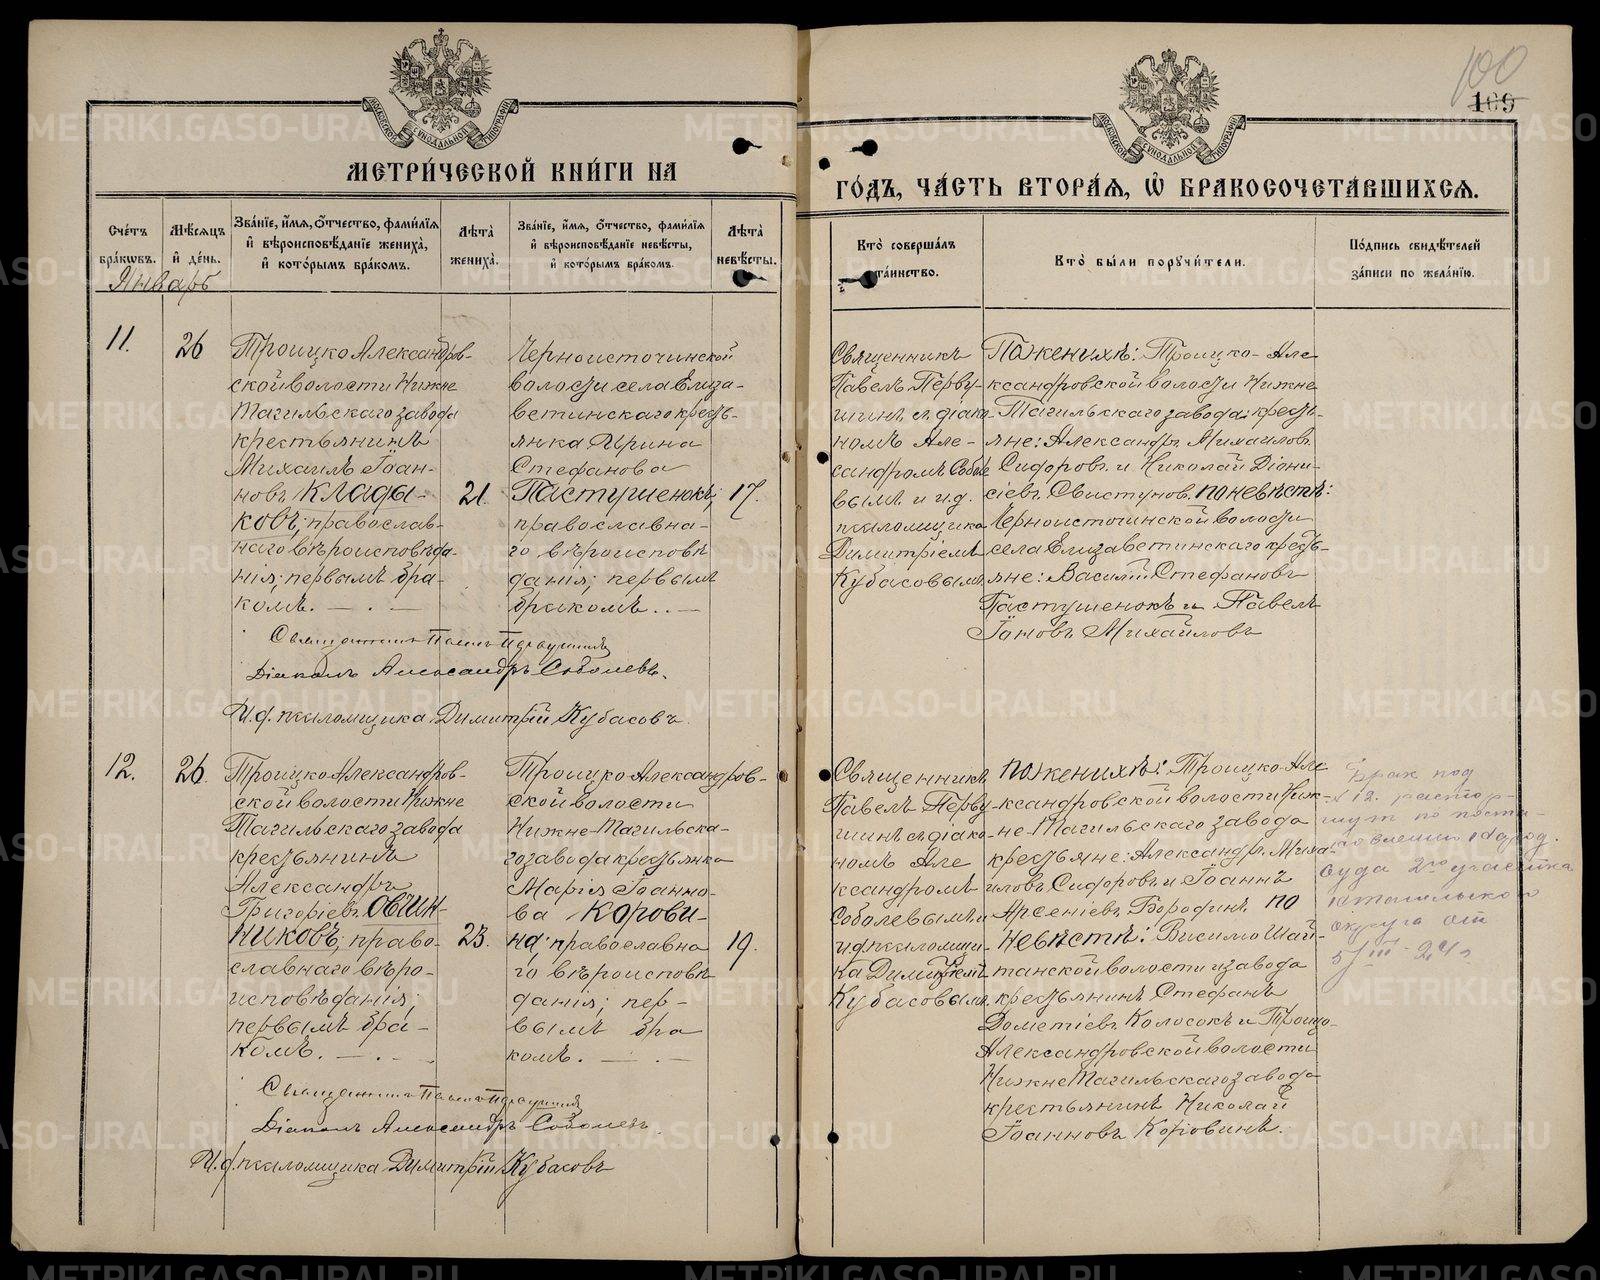 100
109
МОСКОВСКОЙ СѴНОДАЛЬНОЙ ТИПОГРАФІИ
МОСКОВСКОЙ СѴНОДАЛЬНОЙ ТИПОГРАФІИ
МЕТРИ́ЧЕСКОЙ КНИ́ГИ НА
ГО́ДЪ, ЧА́СТЬ ВТОРА́Я, Ѡ҆ БРАКОСОЧЕТА́ВШИХСЯ.
Сче́тъ бра́кѡвъ.
Мѣ́сяцъ и҆ де́нь.
Зва́нїе, и҆́мя, ѻ҆́тчество, фами́лїя и҆ вѣроисповѣ́данїе жениха̀, и҆ кото́рымъ бра́комъ.
Лѣ́та̀ жениха̀.
Зва́нїе, и҆́мя, ѻ҆́тчество, фами́лїя и҆ вѣроисповѣ́данїе невѣ́сты, и҆ кото́рымъ бра́комъ.
Лѣ́та̀ невѣ́сты.
Кто̀ соверша́лъ та́инство.
Кто̀ бы́ли пору́чи́тели.
По́дпись свидѣ́телей за́писи по жела́нїю.
Январь
11.
26
Троицко Александров-
ской волости Нижне
Тагильскаго завода
крестьянинъ
Михаилъ Іоан-
новъ Клады-
ковъ; православ-
наго вѣроисповѣда-
нія; первымъ бра-
комъ. — . —
21.
Черноисточинской
волости села Елиза-
ветинскаго кресть-
янка Ирина
Стефанова
Пастушенокъ;
православна-
го вѣроисповѣ
данія; первымъ
бракомъ. . —
17.
Священникъ
Павелъ Перву-
шинъ съ діако-
номъ Але-
сандромъ Собо
вымъ и и.д.
псаломщика
Димитріемъ
Кубасовымъ
По женихѣ: Троицко-Але
ксандровской волости Нижне
Тагильскаго завода кресть-
яне: Александръ Михаиловъ
Сидоровъ и Николай Діони-
сіевъ Свистуновъ, по невѣстѣ:
Черноисточинской волости
села Елизаветинскаго кресть-
яне: Василій Стефановъ
Пастушенокъ и Павелъ
Іоановъ Михайловъ
Священникъ Павелъ Первушинъ
Діаконъ Александръ Соболевъ.
И.д. псаломщика Димитрій Кубасовъ.
12.
26.
Троицко Александров-
ской волости Нижне
Тагильскаго завода
крестьянинъ
Александръ
Григоріевъ Овчин-
никовъ; право-
славнаго вѣро-
исповѣданія;
первымъ бра-
комъ. — . —
23.
Троицко Александров-
ской волости
Нижне-Тагильска-
го завода крестьянка
Марія Іоанно-
ва Корови-
на; православна
го вѣроисповѣ
данія; пер-
вымъ бра
комъ. — . —
19.
Священникъ
Павелъ Перву-
шинъ съ діако-
номъ Але
ксандромъ
Соболевымъ и
и.д. псаломщи-
ка Димитріемъ
Кубасовымъ
по женихѣ: Троицко-Але
ксандровской волости Ниж-
не-Тагильскаго завода
крестьяне: Александръ Миха-
иловъ Сидоровъ и Іоаннъ
Арсеніевъ Бородинъ, по
невѣстѣ: Висимо Шай-
танской волости и завода
крестьянинъ Стефанъ
Дометіевъ Колосокъ и Троицко-
Александровской волости
Нижне Тагильскаго завода
крестьянинъ Николай
Іоанновъ Коровинъ.
Брак под
№ 12. растор-
гнут по поста-
новлению народ.
Суда 2го участка
Н-тагильского
округа от
5/III-24 г.
Священникъ Павелъ Первушинъ
Діаконъ Александръ Соболевъ.
И.д. псаломщика Димитрій Кубасовъ
METRIKI.GASO-URAL.RU